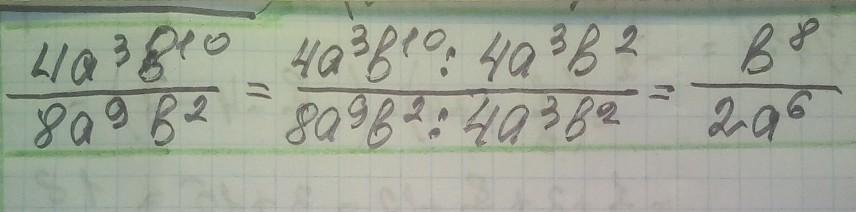 4a³b¹⁰/8a⁹b² = 4a³b¹⁰ : 4a³b²/8a⁹b² : 4a³b² = b⁸/2a⁶